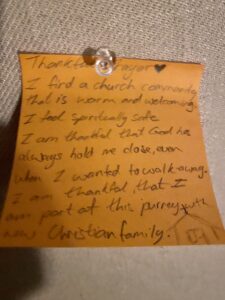 Thankful Prayer ♥
I find a church community
that is warm and welcoming
I feel spiritually safe
I am thankful that God has
always hold me close, even
when I wanted to walk away.
I am thankful, that I
am part of this journey with
new Christian family.